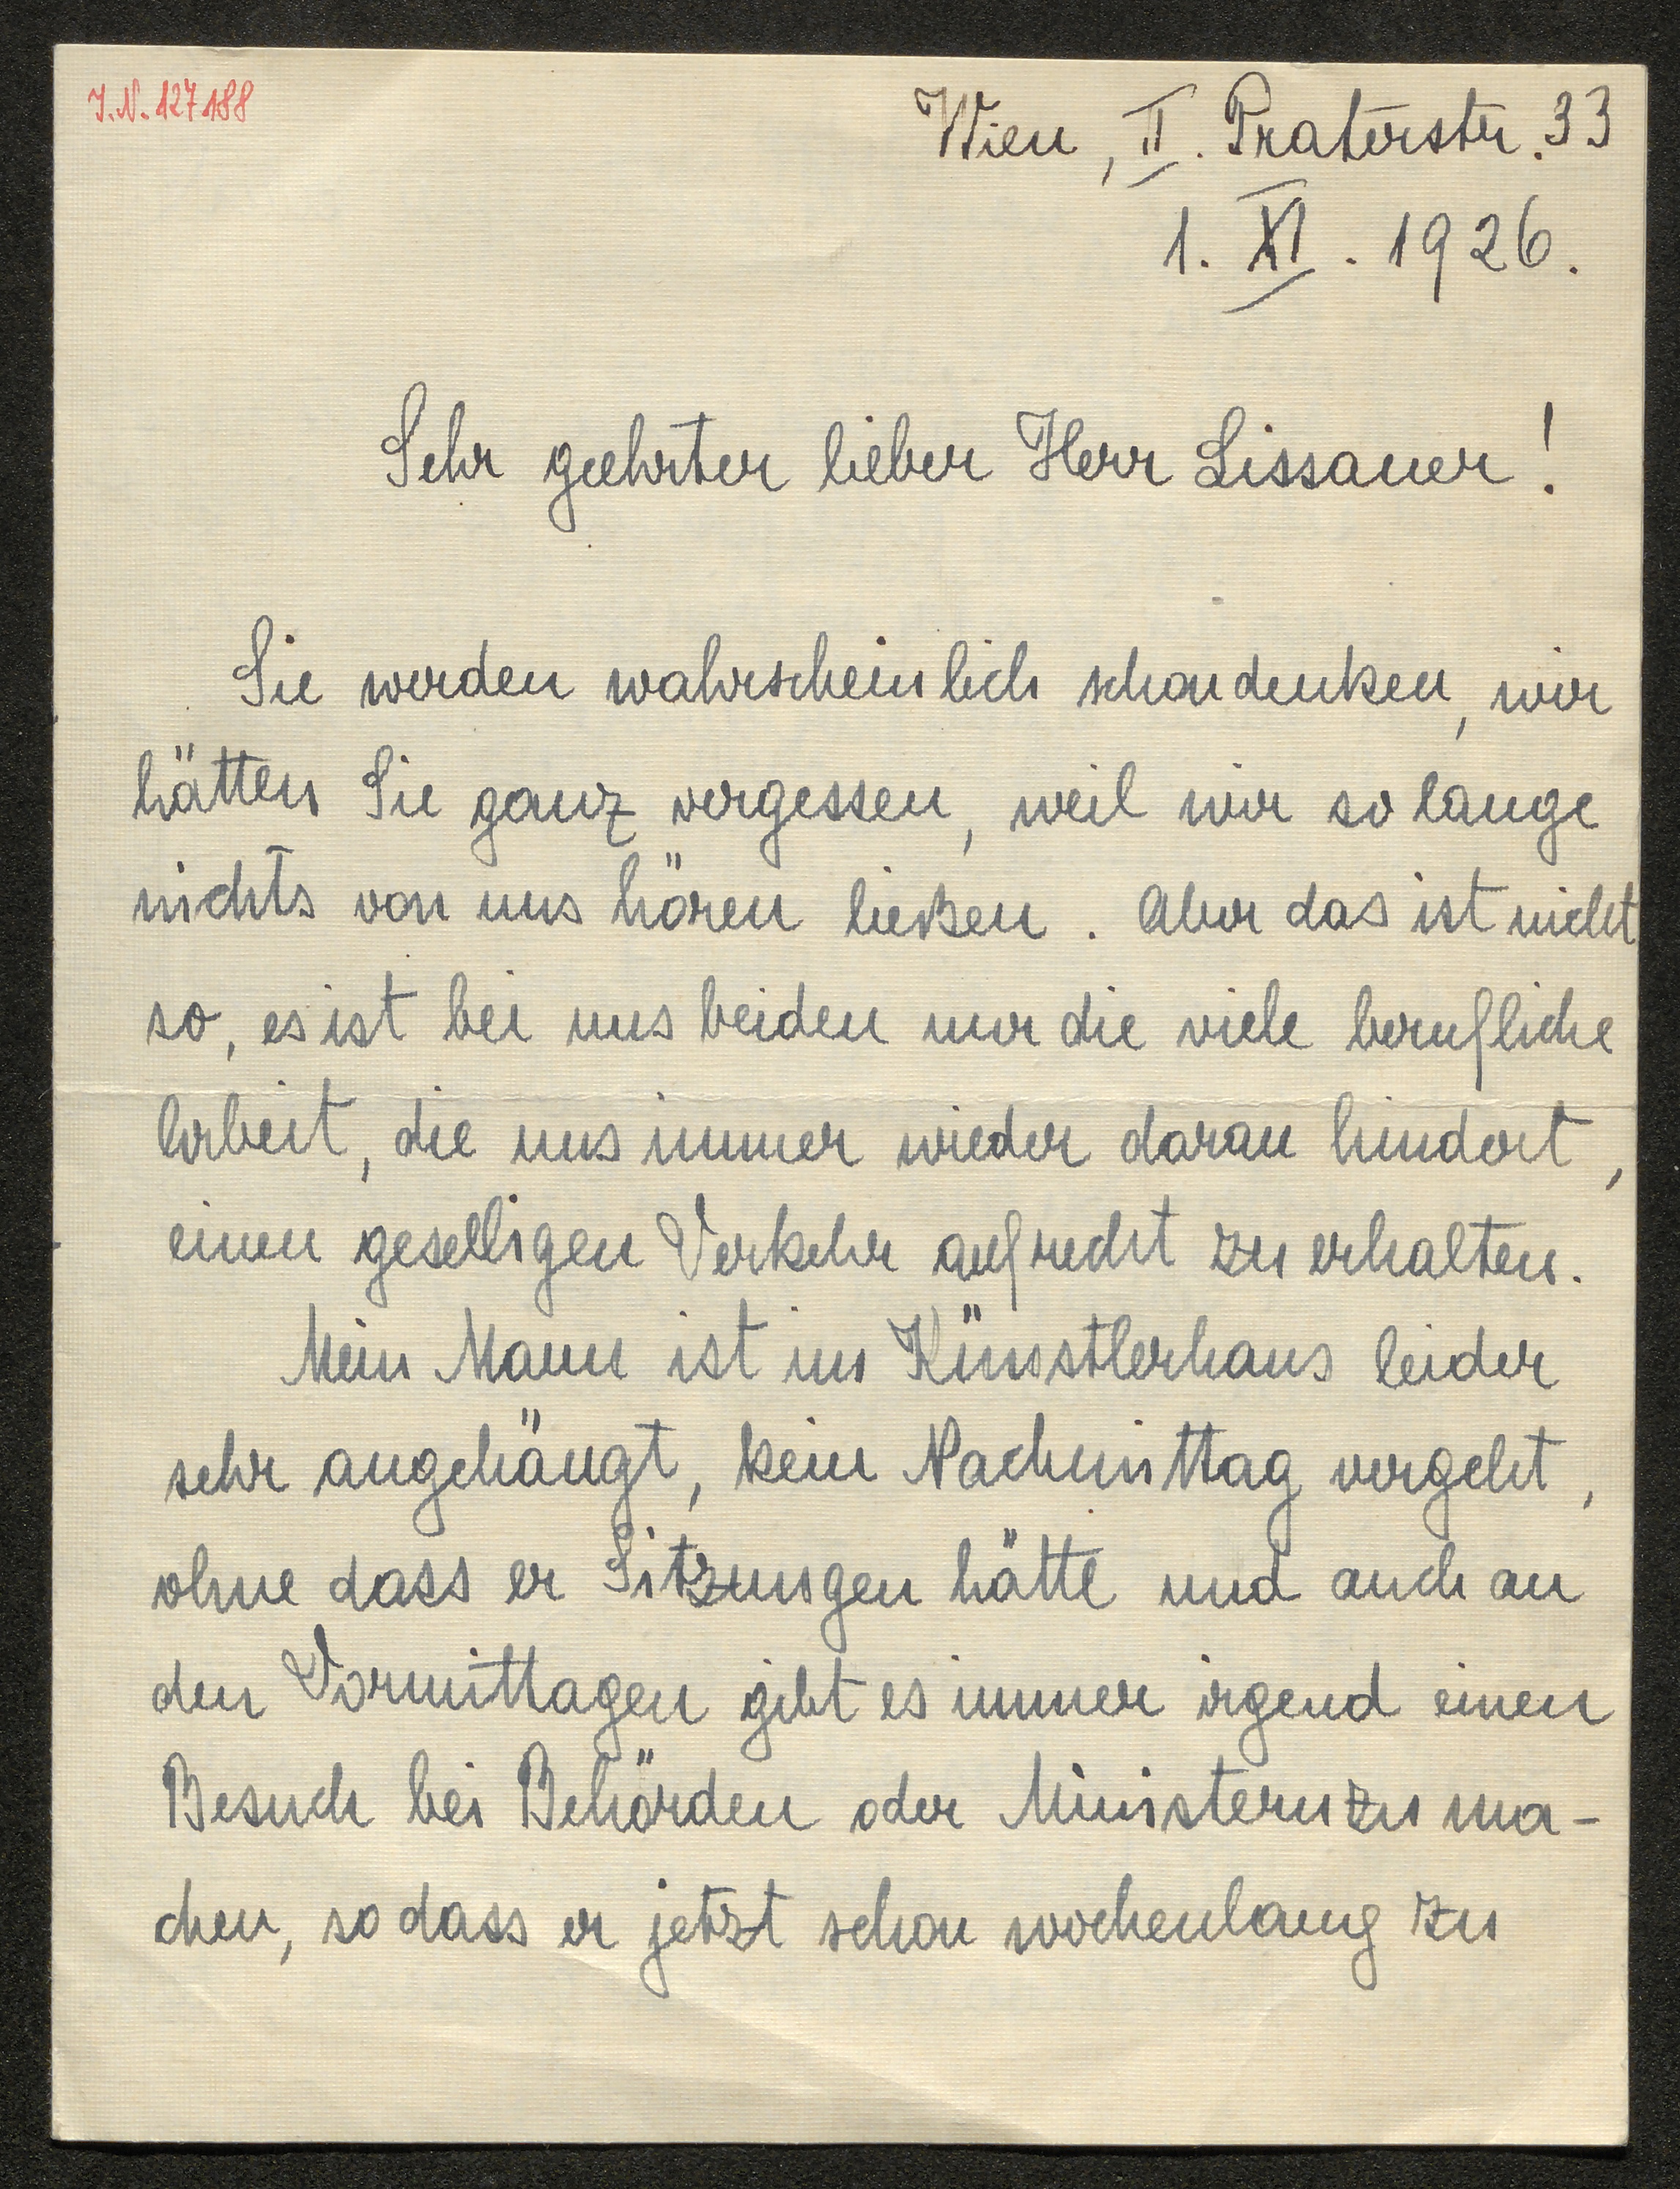 J.N. 127188
Wien, II. Praterstr. 33
1. XI. 1926.
Sehr geehrter lieber Herr Lissauer!
Sie werden wahrscheinlich schon denken, wir
hätten Sie ganz vergessen, weil wir so lange
nichts von uns hören ließen. Aber das ist nicht
so, es ist bei uns beiden nur die viele berufliche
Arbeit, die uns immer wieder daran hindert,
einen geselligen Verkehr aufrecht zu erhalten.
Mein Mann ist im Künstlerhaus leider
sehr angehängt, kein Nachmittag vergeht,
ohne dass er Sitzungen hätte und auch an
den Vormittagen gibt es immer irgend einen
Besuch bei Behörden oder Ministern zu ma-
chen, so dass er jetzt schon wochenlang zu